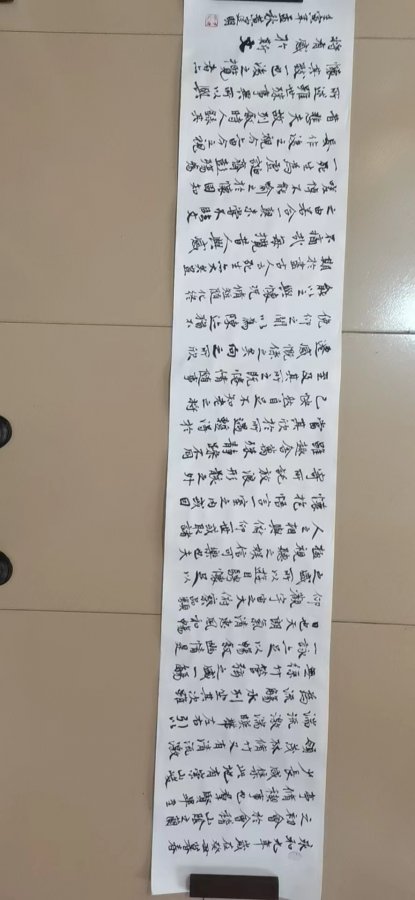 永和九年歲在癸丑暮春
之初會於會稽山陰之蘭
亭脩禊事也群賢畢至
少長咸集此地有崇山峻
領茂林脩竹又有清流激
湍暎帶左右引以
為流觴曲水列坐其次雖
無絲竹管弦之盛一觴
一詠亦足以暢敘幽情是
日也天朗氣清惠風和暢
仰觀宇宙之大俯察品類
之盛所以遊目騁懷足以
極視聽之娛信可樂也夫
人之相與俯仰一世或取諸
懷抱悟言一室之內或因
寄所託放浪形骸之外
雖趣舍萬殊靜躁不同
當其欣於所遇暫得於
己怏然自足不知老之將
至及其所之既惓情隨事
遷感慨係之矣向之所欣
俛仰之間以為陳迹猶不
能以之興懷況脩短隨化終
期於盡古人云死生亦大矣豈
不痛哉每攬昔人興感
之由若合一契未嘗不臨文
嗟悼不能喻之於懷固知
一死生為虛誕齊彭殤為
妄作後之視今亦由今之視
昔悲夫故列敘時人錄其
所述雖世殊事異所以興
懷其致一也後之攬者亦
將有感於斯文
壬寅年孟秋